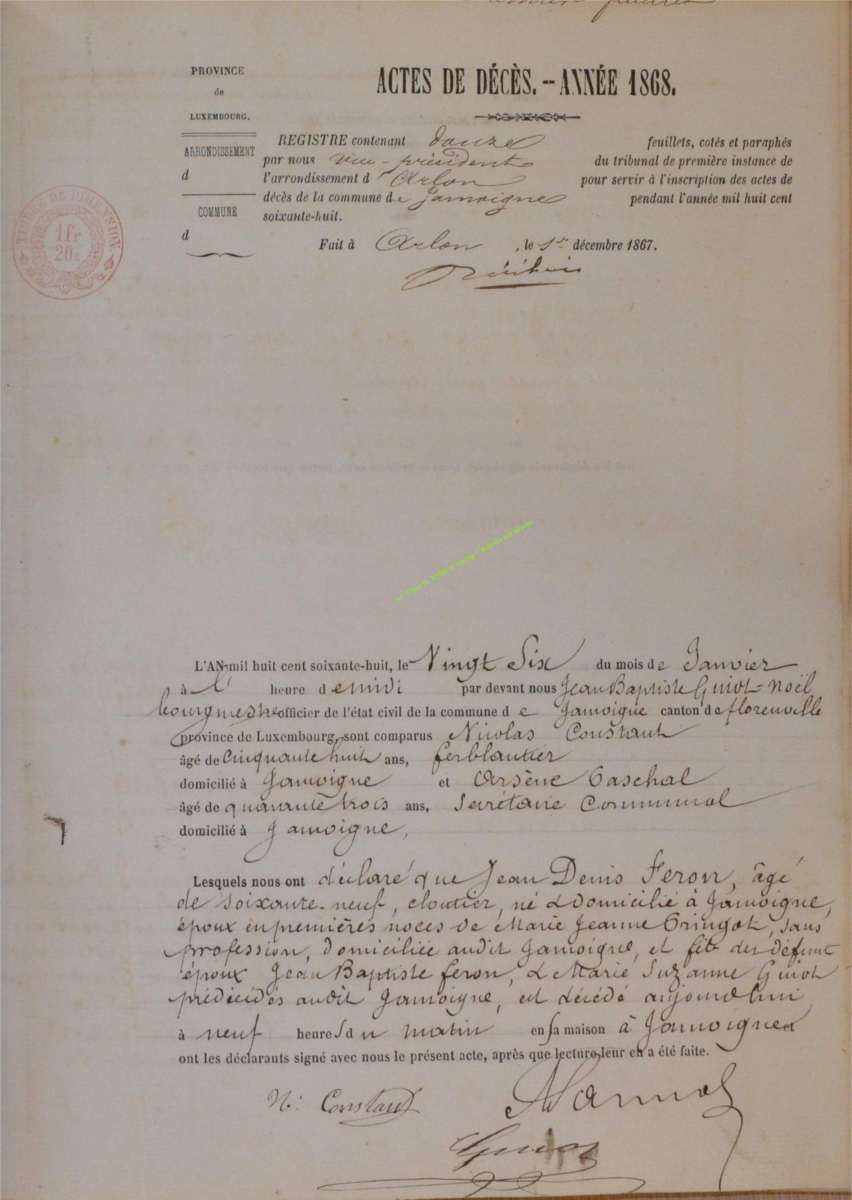 PROVINCE
de
LUXEMBOURG.
ARRONDISSEMENT
d
COMMUNE
d
TIMBRE DE DIMENSION
1 fr
20c
ACTES DE DÉCÈS. — ANNÉE 1868.
REGISTRE contenant douze feuillets, cotés et paraphés
par nous vice-président du tribunal de première instance de
l'arrondissement d'Arlon pour servir à l'inscription des actes de
décès de la commune de Jamoigne pendant l'année mil huit cent
soixante-huit.
Fait à Arlon, le 1er décembre 1867.
L'AN mil huit cent soixante-huit, le Vingt Six du mois de Janvier
à l' heure de midi par devant nous Jean Baptiste Guiot-Noël
bourgmestre officier de l'état civil de la commune de Jamoigne canton de florenville
province de Luxembourg, sont comparus Nicolas Constant
âgé de Cinquante huit ans, ferblantier
domicilié à Jamoigne et Arsène
âgé de quarante trois ans, Secrétaire Communal
domicilié à Jamoigne,
Lesquels nous ont déclaré que Jean Denis Feron, âgé
de soixante-neuf, cloutier, né & domicilié à Jamoigne,
époux en premières noces de Marie Jeanne Tringot, sans
profession, domiciliée audit Jamoigne, et fils des défunt
époux Jean Baptiste feron, & Marie Suzanne Guiot
prédécédés audit Jamoigne, est décédé aujourd'hui
à neuf heures du matin en sa maison à Jamoigne et
ont les déclarants signé avec nous le présent acte, après que lecture leur en a été faite.
N: Constant
Guiot